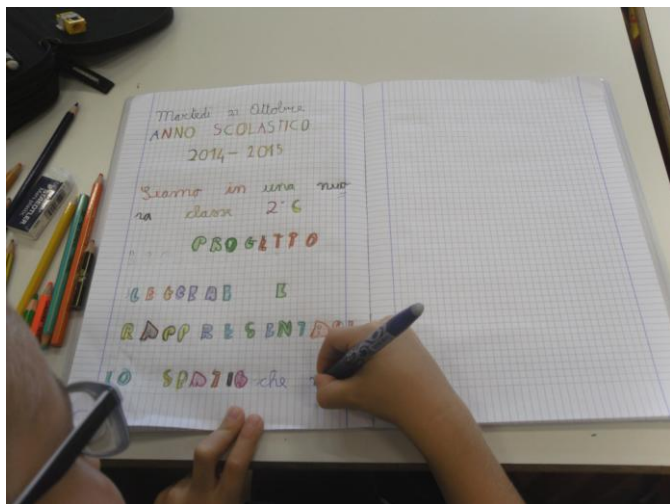 Martedì 21 Ottobre
ANNO SCOLASTICO
2014-2015
Siamo in una nuo
va classe 2°C
PROGETTO
LEGGERE E
RAPPRESENTARE
LO SPAZIO che
STAEDTLER